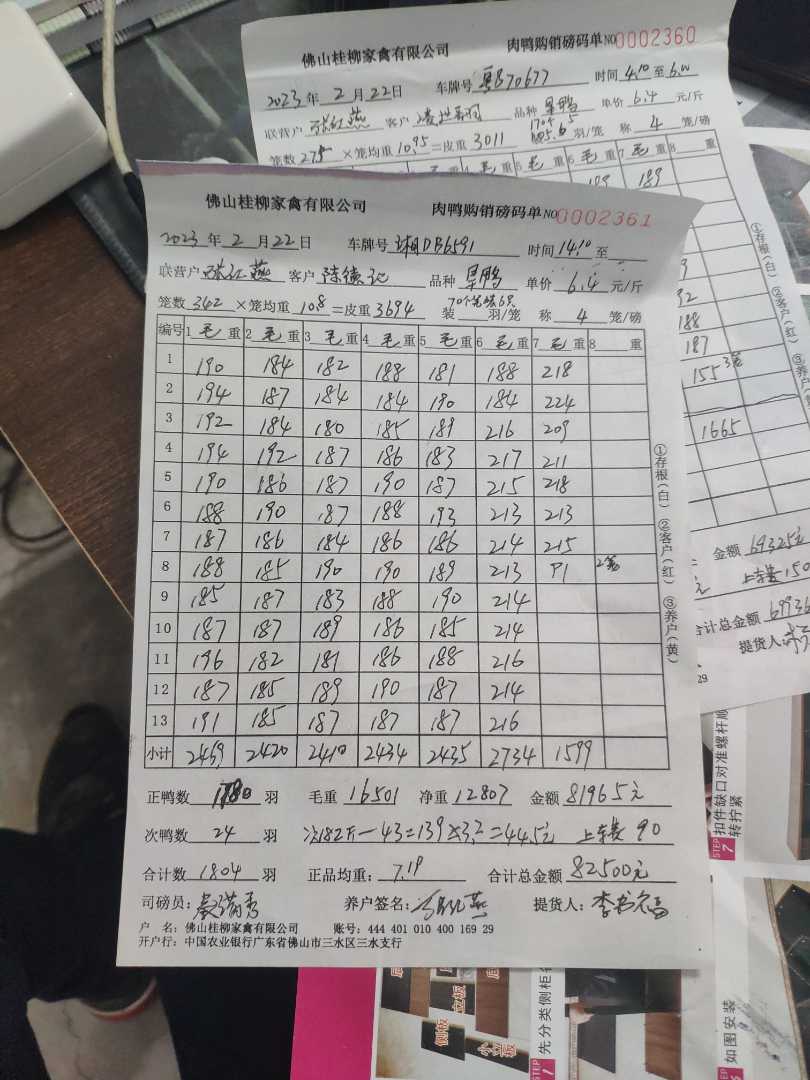 佛山桂柳家禽有限公司 肉鸭购销磅码单NO0002360
2023年2月22日 车牌号 粤B70677 时间4.10至6.10
联营户 客户 品种 单价6.4元/斤
笼数275×笼均重10.95=皮重3011 羽/笼 称4笼/磅
189
188
187
155 3笼
1665
①存根(白) ②客户(红) ③养户(
金额69325元
合计总金额
提货人:
佛山桂柳家禽有限公司 肉鸭购销磅码单NO0002361
2023年2月22日 车牌号湘DB6591 时间14.10至
联营户张红燕 客户陈德记 品种 单价6.4元/斤
笼数342×笼均重10.8=皮重3694 装 羽/笼 称4笼/磅
编号 1毛重 2毛重 3毛重 4毛重 5毛重 6毛重 7毛重 8 重
1 190 184 182 188 181 188 218
2 194 187 184 184 190 184 224
3 192 184 180 185 189 216 209
4 194 192 187 186 183 217 211
5 190 186 187 190 187 215 218
6 188 190 187 188 193 213 213
7 187 186 184 186 186 214 215
8 188 185 190 190 189 213 91 2笼
9 185 187 183 188 190 214
10 187 187 189 186 185 214
11 196 182 181 186 188 216
12 187 185 189 190 187 214
13 191 185 187 187 187 216
小计 2459 2420 2410 2434 2435 2734 1599
①存根(白) ②客户(红) ③养户(黄)
正鸭数1780羽 毛重16501 净重12807 金额81965元
次鸭数24羽 次182斤-43=139×3.2=445元 上车费90
合计数1804羽 正品均重:7.19 合计总金额82500元
司磅员: 养户签名: 提货人:
户 名: 佛山桂柳家禽有限公司 账号: 444 401 010 400 169 29
开户行: 中国农业银行广东省佛山市三水区三水支行
STEP 7 扣件缺口对准螺杆顺
转拧紧
STEP 1 先分类侧柜
如图安装
侧板
立板